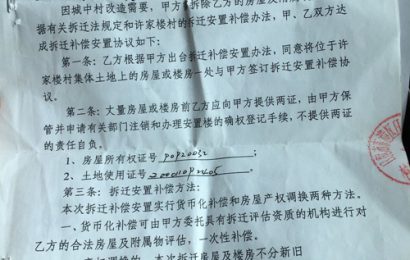 因城中村改造需要，甲方拆除乙方的房屋及附
据有关拆迁法规定和许家楼村的拆迁安置补偿办法，甲、乙双方达
成拆迁补偿安置协议如下：
第一条：乙方根据甲方出台拆迁补偿安置办法，同意将位于许
家楼村集体土地上的房屋或楼房一处与甲方签订拆迁安置补偿协
议。
第二条：丈量房屋或楼房前乙方应向甲方提供两证，由甲方保
管并申请有关部门注销和办理安置楼的确权登记手续，不提供两证
的责任自负。
1、房屋所有权证号
2、土地使用证号
第三条：拆迁安置补偿方法：
本次拆迁补偿安置实行货币化补偿和房屋产权调换两种方法。
一、货币化补偿可由甲方委托具有拆迁评估资质的机构进行对
乙方的合法房屋及附属物评估，一次性补偿。
本次拆迁房屋及楼房不分新旧